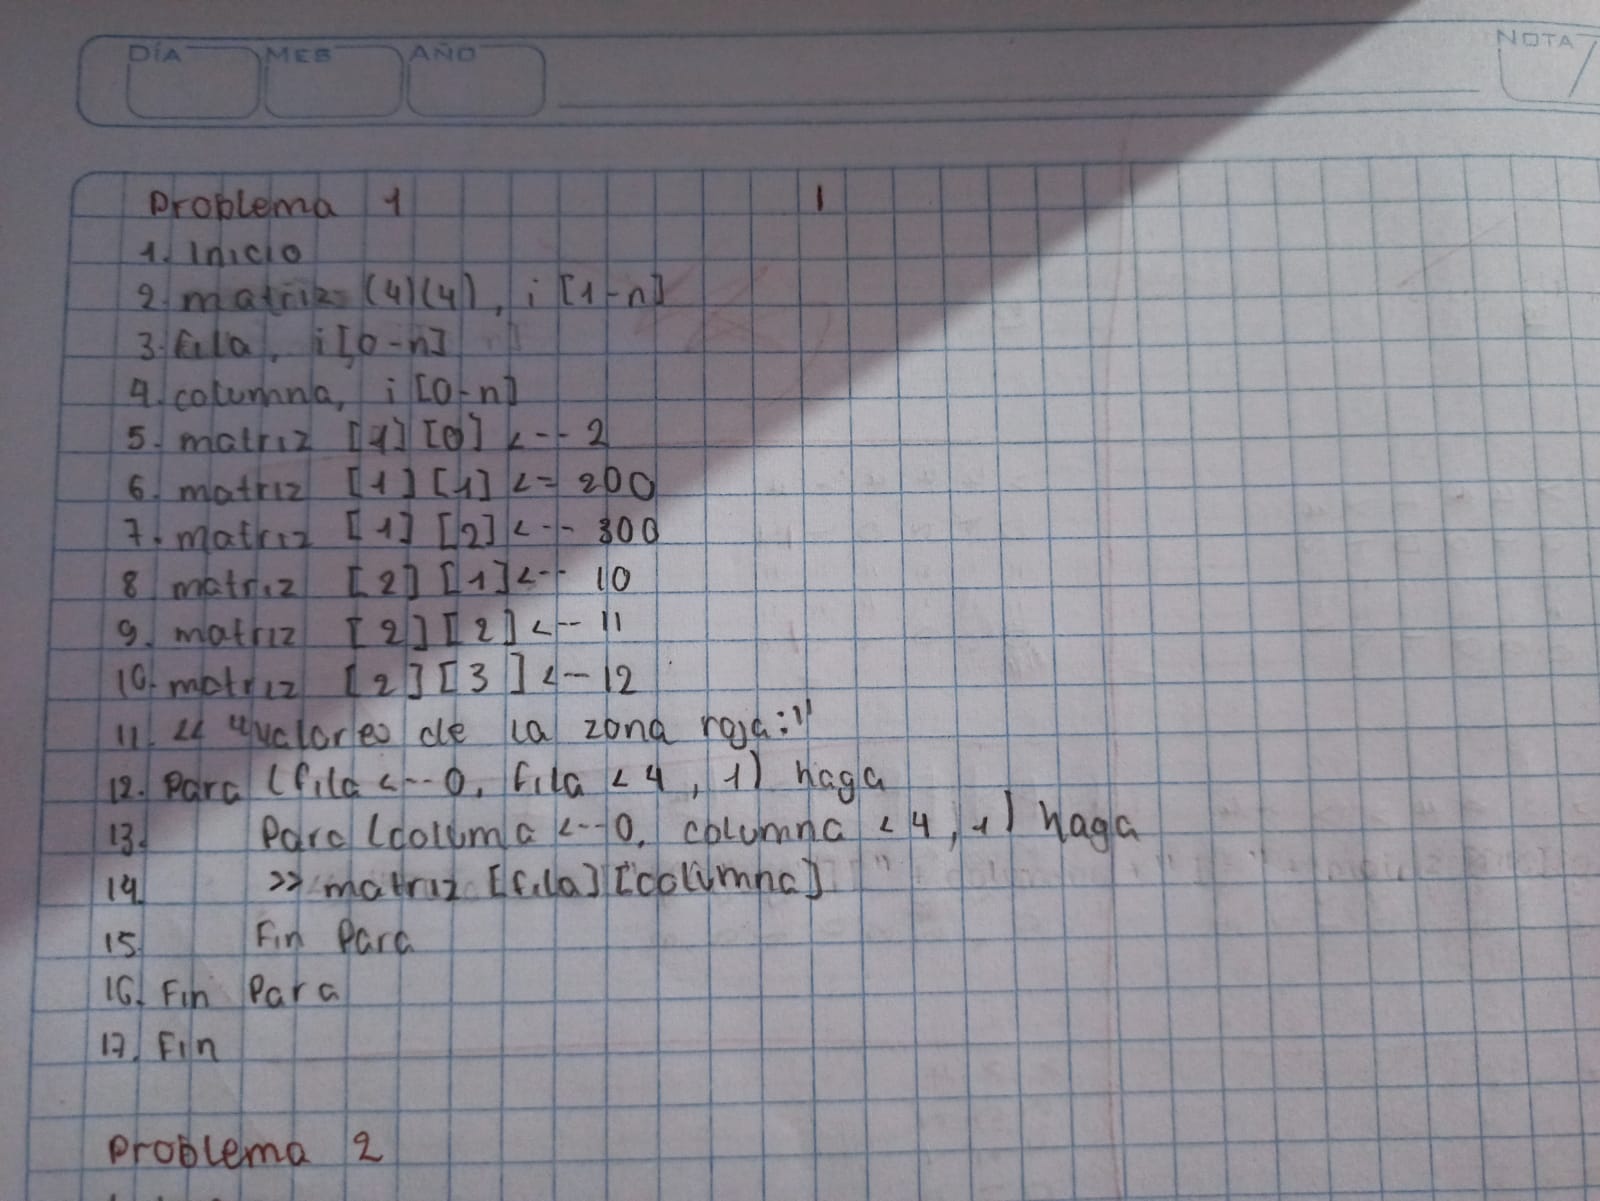 DÍA MES AÑO NOTA
Problema 1
1. Inicio
2. matriz (4)(4), i [1-n]
3. fila, i [0-n]
4. columna, i [0-n]
5. matriz [1][0] <-- 2
6. matriz [1][1] <= 200
7. matriz [1][2] <-- 300
8 matriz [2][1] <-- 10
9. matriz [2][2] <-- 11
10. matriz [2][3] <-- 12
11. << "valores de la zona roja:"
12. Para (fila <-- 0, fila < 4, 1) haga
13. Para (columa <-- 0, columna < 4, 1) haga
14. >> matriz [fila][columna]
15. Fin Para
16. Fin Para
17. Fin
Problema 2